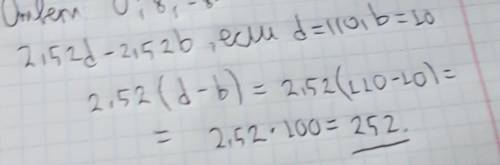 Ответ 0; 8; -8
2,52d-2,52b, если d=110, b=10
2,52(d-b) = 2,52(110-10)=
= 2,52·100=252.